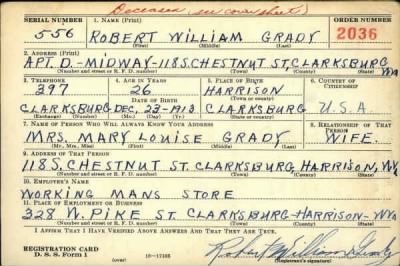 Deceased (see cover sheet)
SERIAL NUMBER 1. Name (Print) ORDER NUMBER
556 ROBERT WILLIAM GRADY 2036
(First) (Middle) (Last)
2. Address (Print)
APT. D.-MIDWAY-118 S. CHESTNUT ST. CLARKSBURG WVA
(Number and street or R. F. D. number) (Town) (County) (State)
3. Telephone 4. Age in Years 5. Place of Birth 6. Country of Citizenship
397 26 HARRISON
Date of Birth (Town or county)
CLARKSBURG DEC, 23-1913 CLARKSBURG U.S.A.
(Exchange) (Number) (Mo.) (Day) (Yr.) (State or country)
7. Name of Person Who Will Always Know Your Address 8. Relationship of That Person
MRS. MARY LOUISE GRADY WIFE.
(Mr., Mrs., Miss) (First) (Middle) (Last)
9. Address of That Person
118 S. CHESTNUT ST. CLARKSBURG, HARRISON, WVA
(Number and street or R. F. D. number) (Town) (County) (State)
10. Employer's Name
WORKING MANS STORE
11. Place of Employment or Business
328 W. PIKE ST. CLARKSBURG-HARRISON-WVA
(Number and street or R. F. D. number) (Town) (County) (State)
I Affirm That I Have Verified Above Answers and That They Are True.
REGISTRATION CARD
D. S. S. Form 1 (over) 16-17105
Robert William Grady
(Registrant's signature)